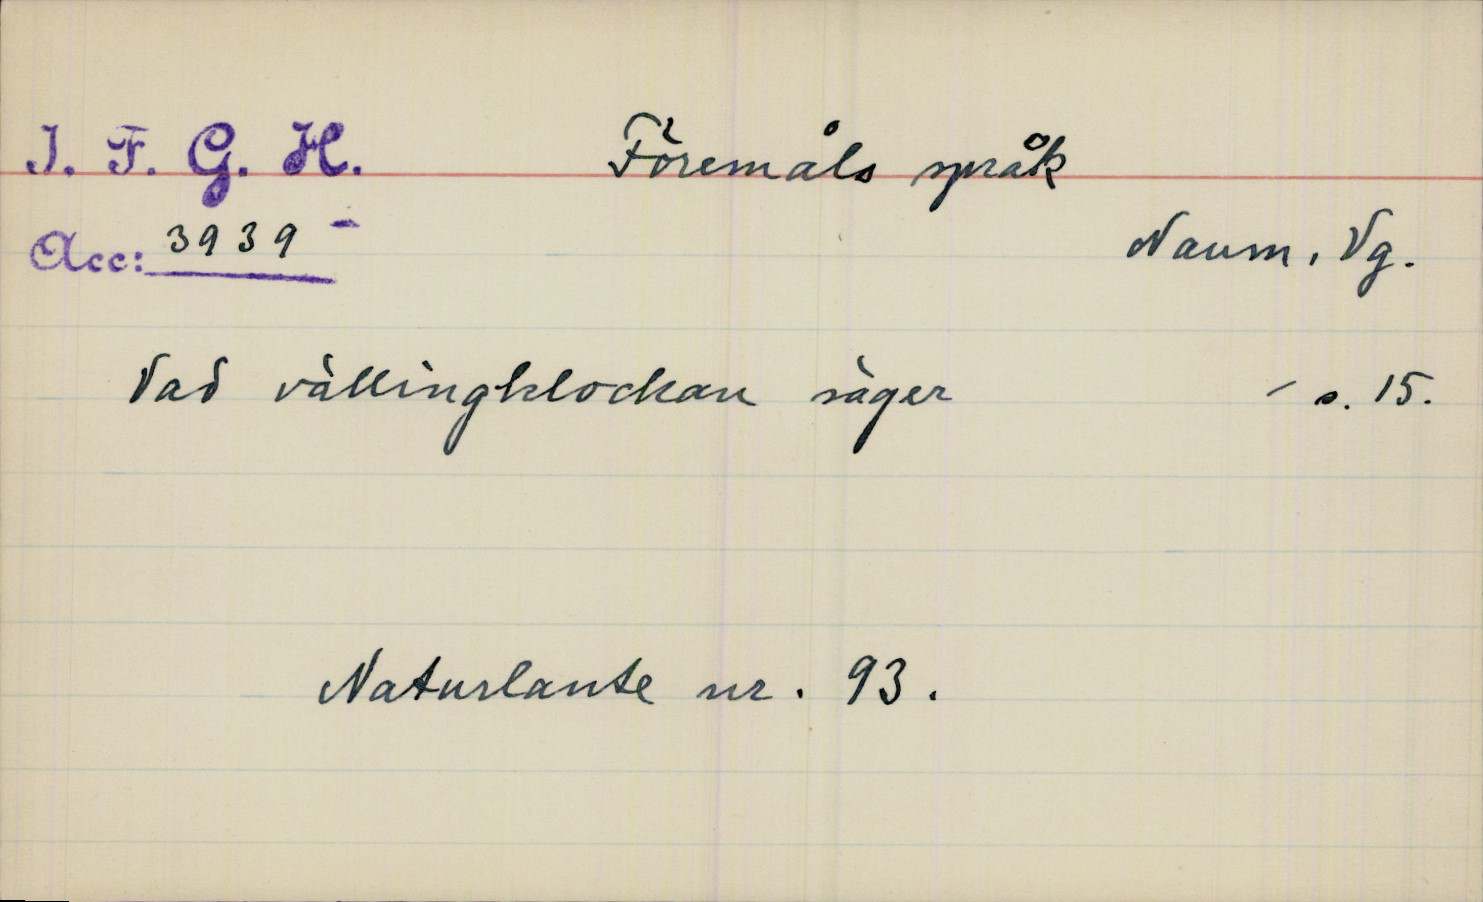 I. F. G. H. Föremåls språk
Acc: 3939
Naum, Vg.
Vad vällingklockan säger s. 15.
Naturlante nr. 93.